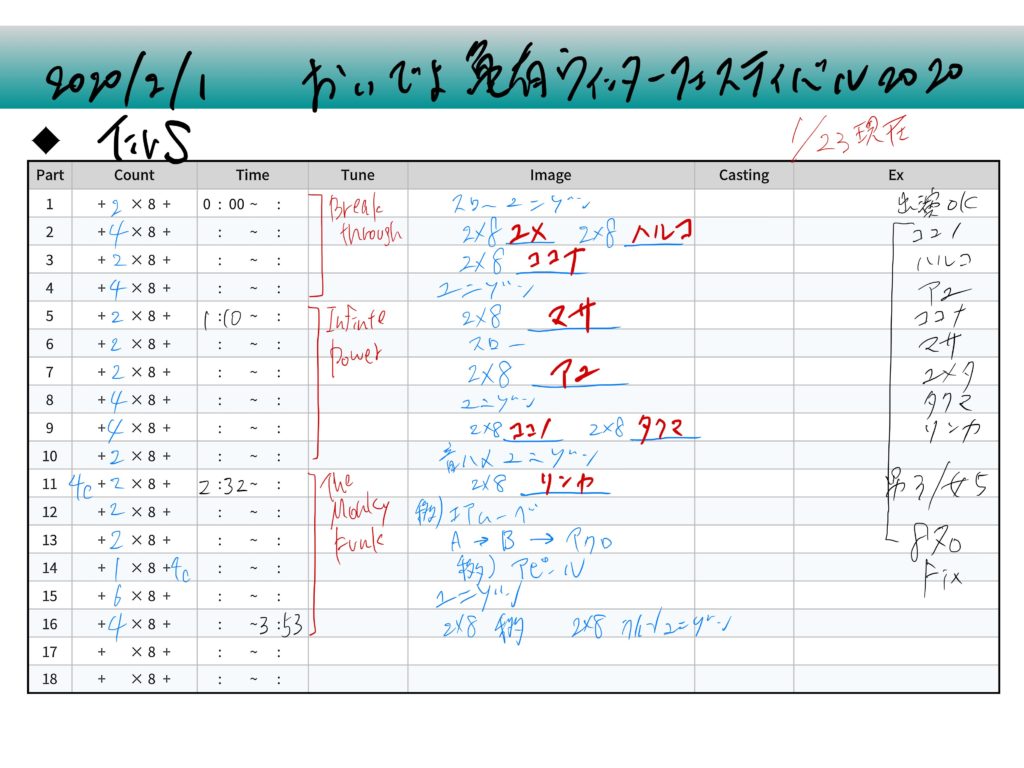 2020/2/1 おいでよ亀有ウィンターフェスティバル2020
◆
1/23現在
Part Count Time Tune Image Casting Ex
1 + 2 × 8 + 0 : 00 ~ : Break スローユニゾン 出演OK
2 + 4 × 8 + : ~ : through 2×8 ユメ 2×8 ハルコ ココノ
3 + 2 × 8 + : ~ : 2×8 ココナ ハルコ
4 + 4 × 8 + : ~ : ユニゾン アユ
5 + 2 × 8 + 1 : 10 ~ : Infinte 2×8 マサ ココナ
6 + 2 × 8 + : ~ : power スロー マサ
7 + 2 × 8 + : ~ : 2×8 アユ ユメタ
8 + 4 × 8 + : ~ : ユニゾン タクマ
9 + 4 × 8 + : ~ : 2×8 ココノ 2×8 タクマ リンカ
10 + 2 × 8 + : ~ : 音ハメユニゾン
11 4c + 2 × 8 + 2 : 32 ~ : The 2×8 リンカ 男3/女5
12 + 2 × 8 + : ~ : Monkey 移)エアムーブ
13 + 2 × 8 + : ~ : Funk A → B → アクロ 8名
14 + 1 × 8 + 4c : ~ : 移)アピール Fix
15 + 6 × 8 + : ~ : ユニゾン
16 + 4 × 8 + : ~ 3 : 53 2×8 移 2×8 ユニゾン
17 + × 8 + : ~ :
18 + × 8 + : ~ :